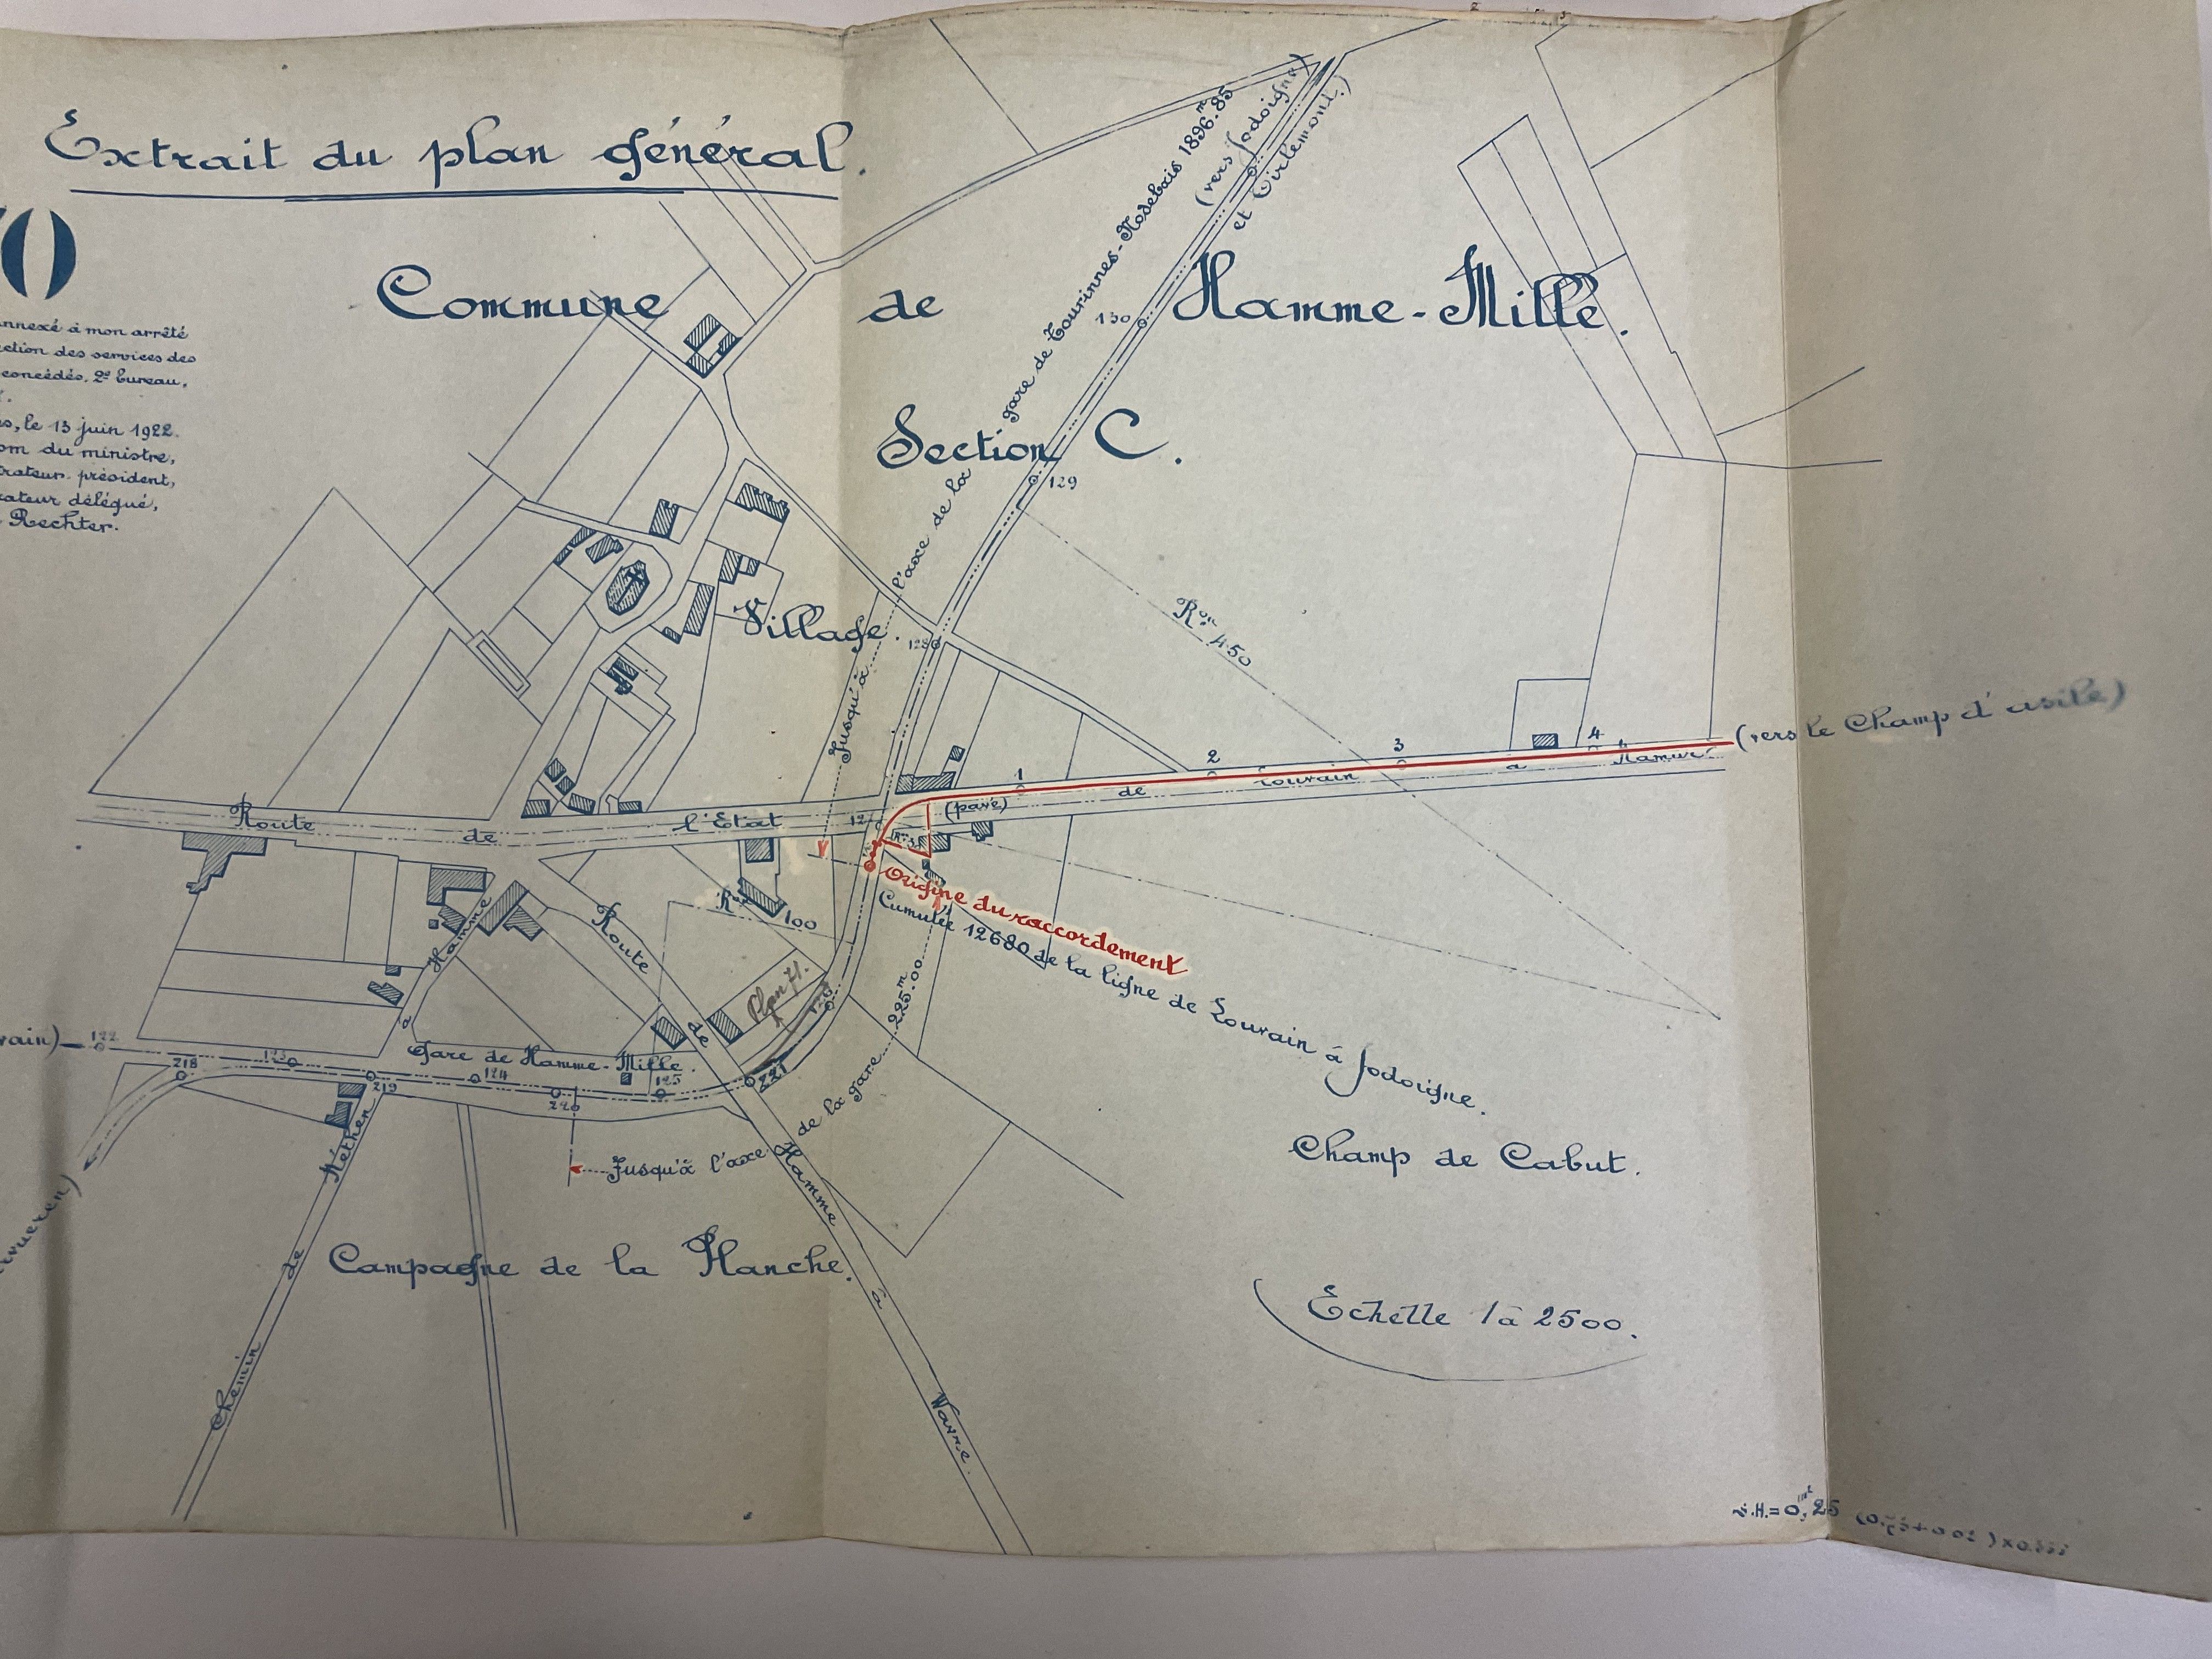 Extrait du plan général.
annexé à mon arrêté
ction des services des
concédés, 2e bureau,
s, le 13 juin 1922.
om du ministre,
trateur président,
rateur délégué,
Rechter.
Commune de Hamme-Mille.
Section C.
Jusqu'à l'axe de la gare de Tourinnes-Nodebais 1896.m85
(vers Jodoigne)
et Tirlemont.)
130
129
128
Village.
Ron 450
(vers le Champ d'asile)
1 2 3 4
Route de l'Etat (pavé) de Louvain à Namur
Origine du raccordement
Cumulée 12680 de la ligne de Louvain à Jodoigne.
Ron 100
Route de Hamme à Wavre.
Hamme à
Plan 71.
vain)
122
218
123
219
124
220
125
221
Gare de Hamme-Mille.
Jusqu'à l'axe de la gare 225m.00
Champ de Cabut.
Chemin de Néthen
Campagne de la Planche.
Echelle 1 à 2500.
vueren)